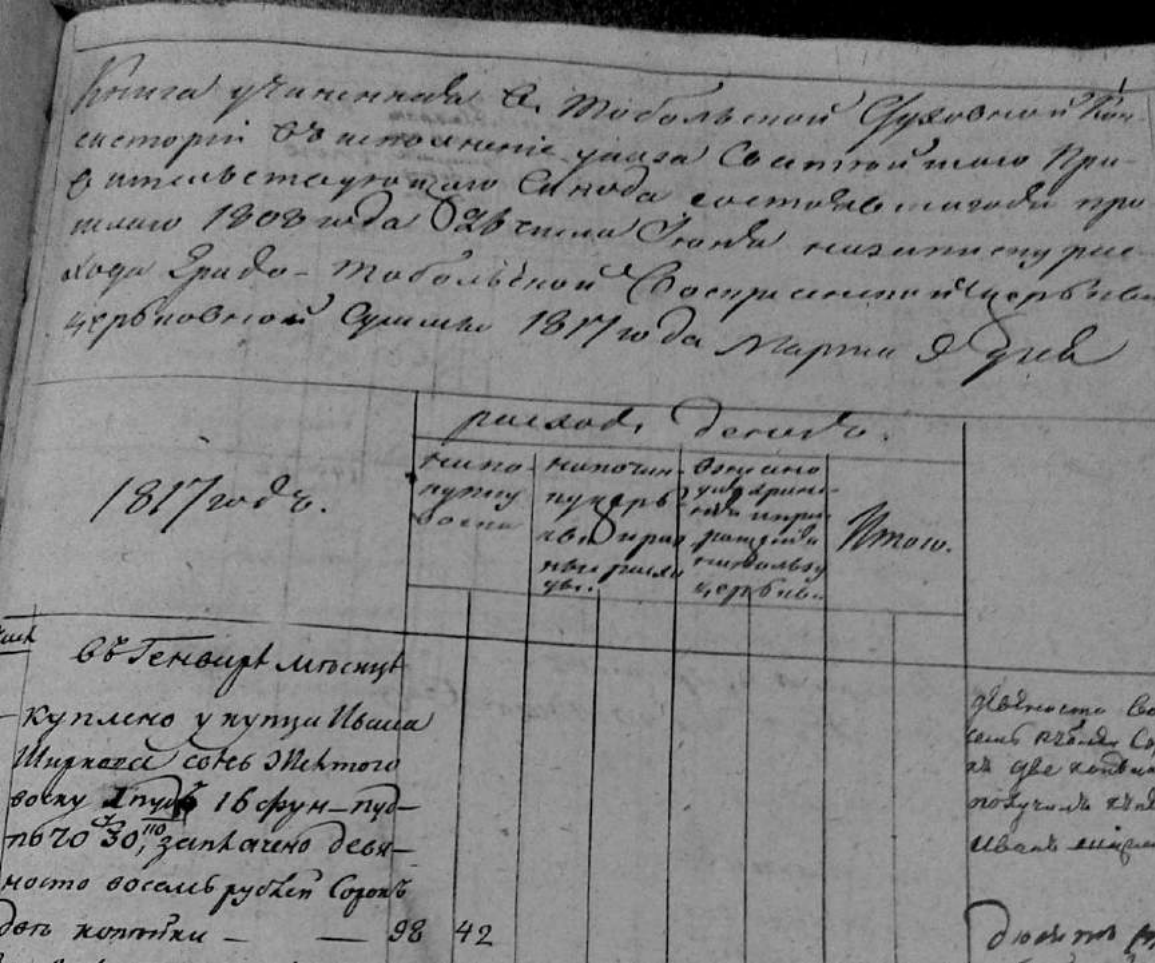 Книга учиненная въ Тобольской Духовной Кон-
систоріи въ исполненіе указа Святейшаго Пра-
вительствующаго Синода состоявшагося про
шлаго 1808 года числа Іюня на записку рас-
хода Градо-Тобольской Воскресенской церкви
церковной Суммы 1817 года Марта 9 дня
расходъ денегъ.
1817 годъ.
на по-
купку
воска
на почин-
ку церк
кви и раз
ные расхо
ды.
украше-
нія и при
ращенія
на пользу
церкви.
Итого.
въ Генваре месяце
куплено у купца Ивана
Ширкова сотъ Желтого
воску 1 пудъ 16 фун- пуд-
по 70 30, заплачено девя-
носто восемь рублей Сорокъ
две копейки — — 98 42
девяносто во
семь рублей Со
къ две копей
получилъ куп
Иванъ